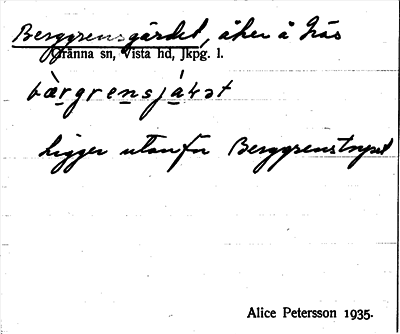 Berggrensgärdet, åker å Näs
Gränna sn, Vista hd, Jkpg. l.
bàrgrensjáɫət
Ligger utanför Berggrenstorpet
Alice Petersson 1935.